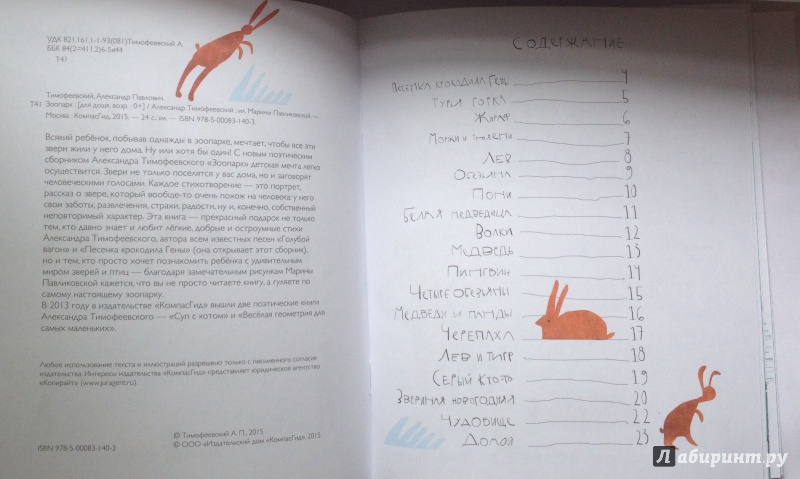 УДК 821.161.1-1-93(081)Тимофеевский А.
ББК 84(2=411.2)6-5я44
Т41
Тимофеевский, Александр Павлович.
Т41 Зоопарк : [для дошк. возр. : 0+] / Александр Тимофеевский ; ил. Марины Павликовской —
Москва : КомпасГид, 2015. — 24 с.; ил. — ISBN 978-5-00083-140-3.
Всякий ребёнок, побывав однажды в зоопарке, мечтает, чтобы все эти
звери жили у него дома. Ну или хотя бы один! С новым поэтическим
сборником Александра Тимофеевского «Зоопарк» детская мечта легко
осуществится. Звери не только поселятся у вас дома, но и заговорят
человеческими голосами. Каждое стихотворение — это портрет,
рассказ о звере, который вообще-то очень похож на человека: у него
свои заботы, развлечения, страхи, радости, ну и, конечно, собственный
неповторимый характер. Эта книга — прекрасный подарок не только
тем, кто давно знает и любит лёгкие, добрые и остроумные стихи
Александра Тимофеевского, автора всем известных песен «Голубой
вагон» и «Песенка крокодила Гены» (она открывает этот сборник),
но и тем, кто просто хочет познакомить ребёнка с удивительным
миром зверей и птиц — благодаря замечательным рисункам Марины
Павликовской кажется, что вы не просто читаете книгу, а гуляете по
самому настоящему зоопарку.
В 2013 году в издательстве «КомпасГид» вышли две поэтические книги
Александра Тимофеевского — «Суп с котом» и «Весёлая геометрия для
самых маленьких».
Любое использование текста и иллюстраций разрешено только с письменного согласия
издательства. Интересы издательства «КомпасГид» представляет юридическое агентство
«Копирайт» (www.juragent.ru).
© Тимофеевский А. П., 2015
ISBN 978-5-00083-140-3
© ООО «Издательский дом «КомпасГид», 2015
СОДЕРЖАНИЕ
Песенка крокодила Гены 4
Турья горка 5
Жираф 6
Моржи и тюлени 7
Лев 8
Обезьяна 9
Пони 10
Белая медведица 11
Волки 12
Медведь 13
Пингвин 14
Четыре обезьяны 15
Медведи и панды 16
Черепаха 17
Лев и тигр 18
Серый Кто-то 19
Звериная новогодняя 20
Чудовище 22
Домой 23
Лабиринт.ру